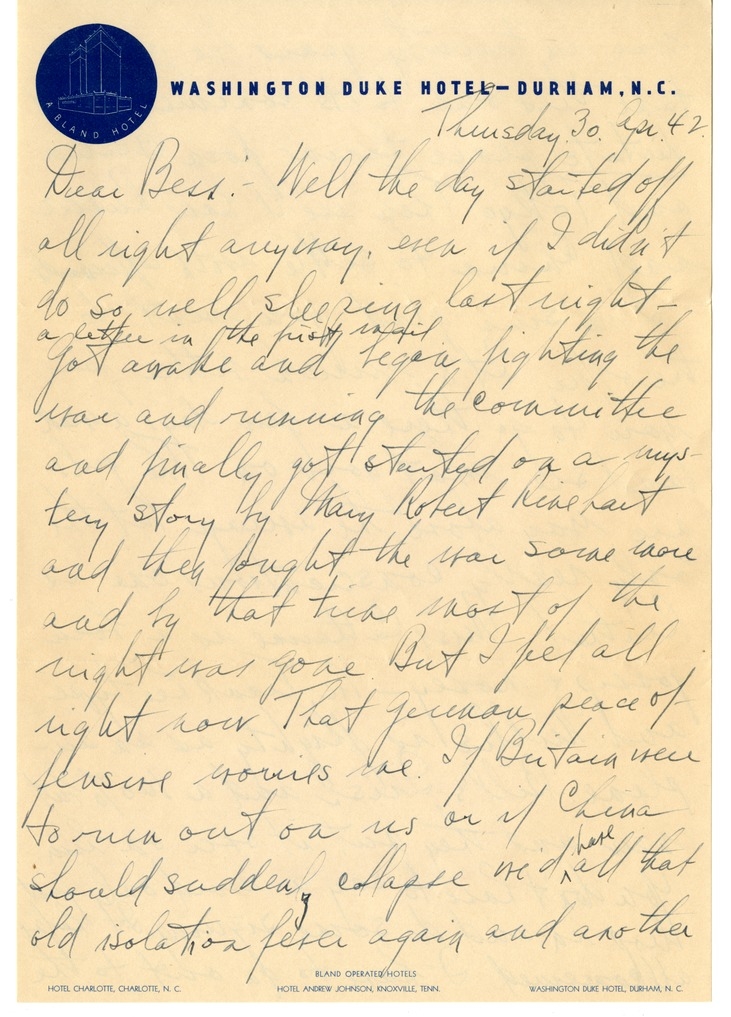 A BLAND HOTEL
WASHINGTON DUKE HOTEL—DURHAM, N.C.
Thursday, 30. Apr. 42.
Dear Bess:- Well the day started off
all right anyway, even if I didn't
do so well sleeping last night-
a letter in the first mail
Got awake and began fighting the
war and running the committee
and finally got started on a mys-
tery story by Mary Robert Rinehart
and then fought the war some more
and by that time most of the
night was gone. But I feel all
right now. That German peace of-
fensive worries me. If Britain were
to run out on us or if China
should suddenly collapse we'd have all that
old isolation fever again and another
BLAND OPERATED HOTELS
HOTEL CHARLOTTE, CHARLOTTE, N. C.
HOTEL ANDREW JOHNSON, KNOXVILLE, TENN.
WASHINGTON DUKE HOTEL, DURHAM, N. C.